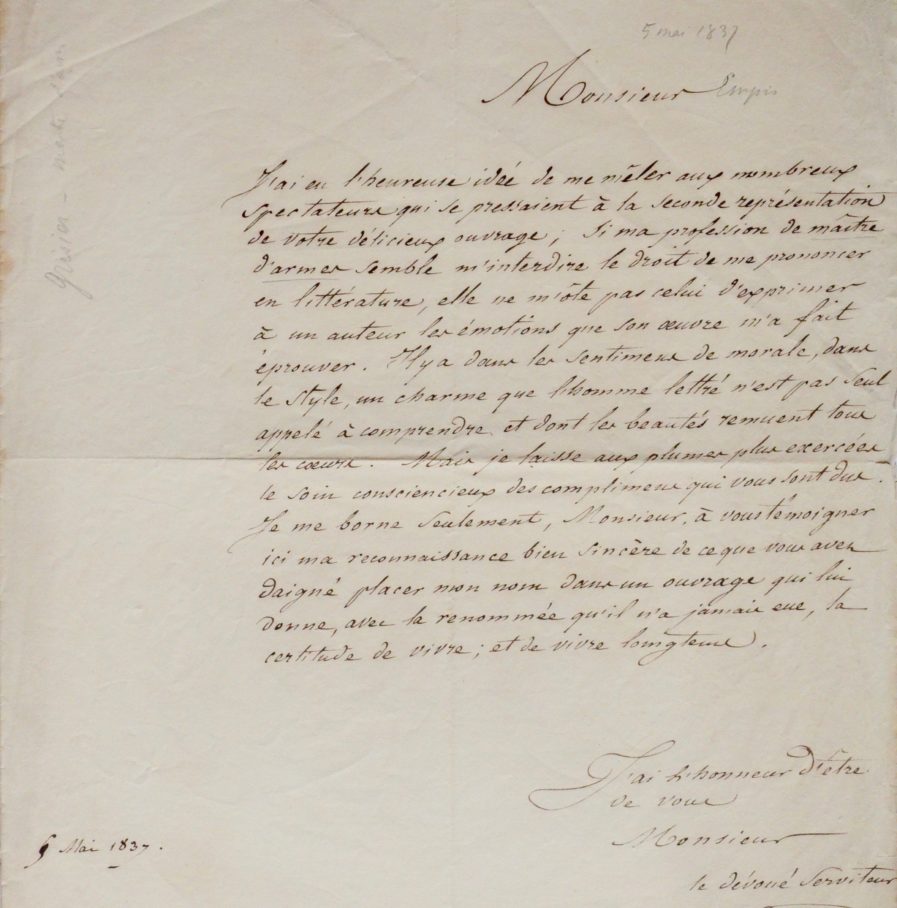 5 mai 1837
Monsieur Empis
J'ai eu l'heureuse idée de me mêler aux nombreux
spectateurs qui se pressaient à la seconde représentation
de votre délicieux ouvrage; si ma profession de maître
d'armes semble m'interdire le droit de me prononcer
en littérature, elle ne m'ôte pas celui d'exprimer
à un auteur les émotions que son œuvre m'a fait
éprouver. Il y a dans les sentimens de morale, dans
le style, un charme que l'homme lettré n'est pas seul
appelé à comprendre et dont les beautés remuent tous
les cœurs. Mais je laisse aux plumes plus exercées
le soin consciencieux des complimens qui vous sont dus.
Je me borne seulement, Monsieur, à vous témoigner
ici ma reconnaissance bien sincère de ce que vous avez
daigné placer mon nom dans un ouvrage qui lui
donne, avec la renommée qu'il n'a jamais eue, la
certitude de vivre; et de vivre longtems.
J'ai l'honneur d'être
de vous
Monsieur
le dévoué serviteur
5 Mai 1837.
Grisier -